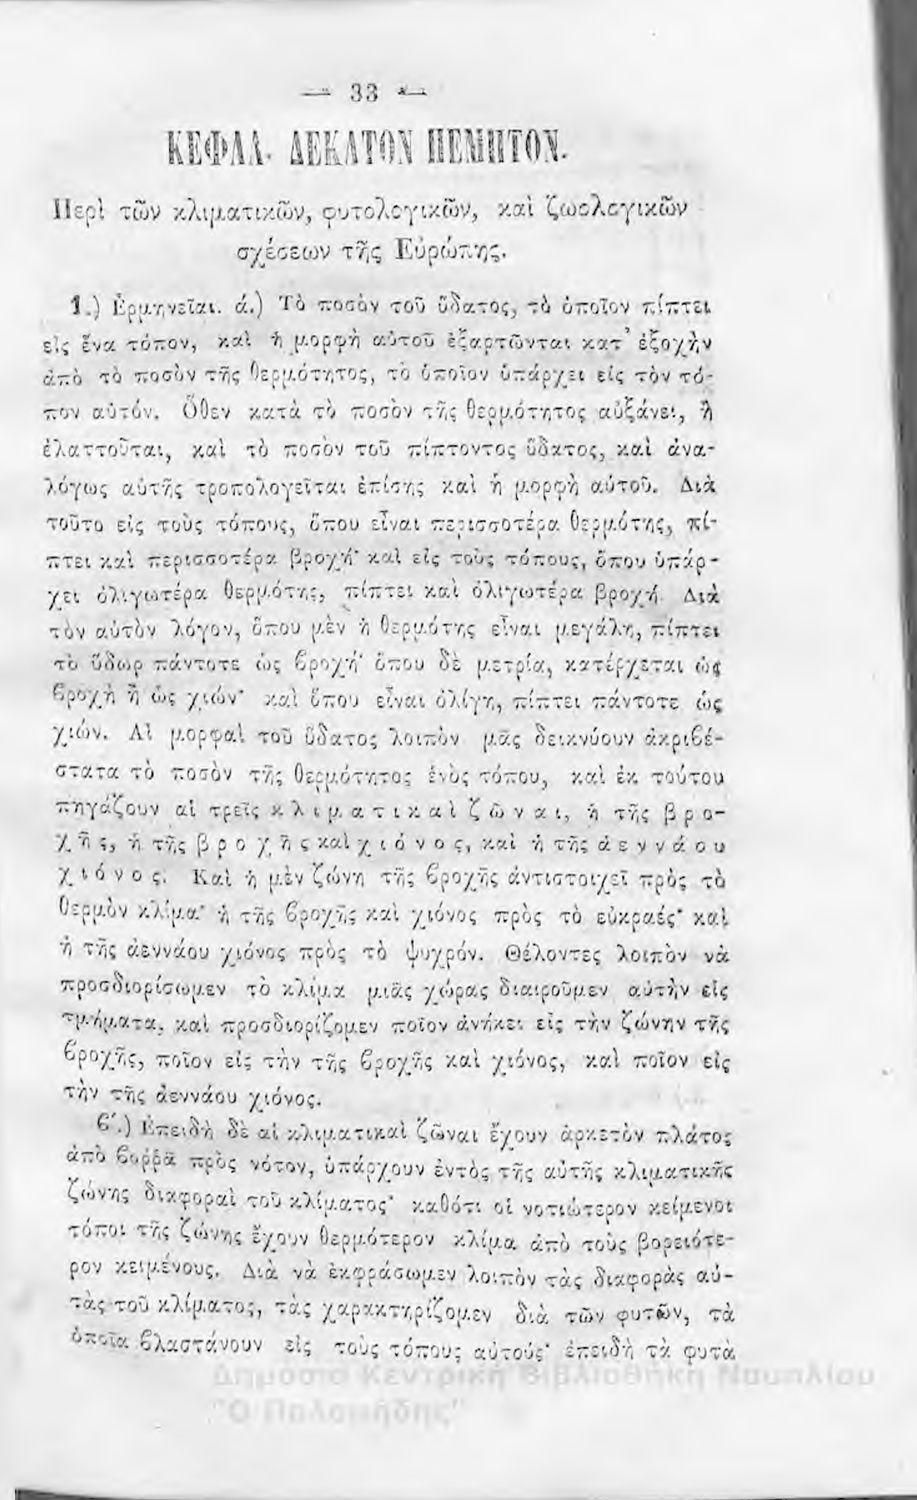 — 33 —
ΚΕΦΑΛ. ΔΕΚΑΤΟΝ ΠΕΜΠΤΟΝ.
Περὶ τῶν κλιματικῶν, φυτολογικῶν, καὶ ζωολογικῶν
σχέσεων τῆς Εὐρώπης.
1.) Ἑρμηνεῖαι. ά.) Τὸ ποσὸν τοῦ ὕδατος, τὸ ὁποῖον πίπτει
εἰς ἕνα τόπον, καὶ ἡ μορφὴ αὐτοῦ ἐξαρτῶνται κατ' ἐξοχὴν
ἀπὸ τὸ ποσὸν τῆς θερμότητος, τὸ ὁποῖον ὑπάρχει εἰς τὸν τό-
πον αὐτόν. Ὅθεν κατὰ τὸ ποσὸν τῆς θερμότητος αὐξάνει, ἢ
ἐλαττοῦται, καὶ τὸ ποσὸν τοῦ πίπτοντος ὕδατος, καὶ ἀνα-
λόγως αὐτῆς τροπολογεῖται ἐπίσης καὶ ἡ μορφὴ αὐτοῦ. Διὰ
τοῦτο εἰς τοὺς τόπους, ὅπου εἶναι περισσοτέρα θερμότης, πί-
πτει καὶ περισσοτέρα βροχή· καὶ εἰς τοὺς τόπους, ὅπου ὑπάρ-
χει ὀλιγωτέρα θερμότης, πίπτει καὶ ὀλιγωτέρα βροχή. Διὰ
τὸν αὐτὸν λόγον, ὅπου μὲν ἡ θερμότης εἶναι μεγάλη, πίπτει
τὸ ὕδωρ πάντοτε ὡς βροχή· ὅπου δὲ μετρία, κατέρχεται ὡς
βροχὴ ἢ ὡς χιών· καὶ ὅπου εἶναι ὀλίγη, πίπτει πάντοτε ὡς
χιών. Αἱ μορφαὶ τοῦ ὕδατος λοιπὸν μᾶς δεικνύουν ἀκριβέ-
στατα τὸ ποσὸν τῆς θερμότητος ἑνὸς τόπου, καὶ ἐκ τούτου
πηγάζουν αἱ τρεῖς κλιματικαὶ ζῶναι, ἡ τῆς βρο-
χῆς, ἡ τῆς βροχῆς καὶ χιόνος, καὶ ἡ τῆς ἀεννάου
χιόνος. Καὶ ἡ μὲν ζώνη τῆς βροχῆς ἀντιστοιχεῖ πρὸς τὸ
θερμὸν κλίμα· ἡ τῆς βροχῆς καὶ χιόνος πρὸς τὸ εὐκραές· καὶ
ἡ τῆς ἀεννάου χιόνος πρὸς τὸ ψυχρόν. Θέλοντες λοιπὸν νὰ
προσδιορίσωμεν τὸ κλίμα μιᾶς χώρας διαιροῦμεν αὐτὴν εἰς
τμήματα, καὶ προσδιορίζομεν ποῖον ἀνήκει εἰς τὴν ζώνην τῆς
βροχῆς, ποῖον εἰς τὴν τῆς βροχῆς καὶ χιόνος, καὶ ποῖον εἰς
τὴν τῆς ἀεννάου χιόνος.
β'.) Ἐπειδὴ δὲ αἱ κλιματικαὶ ζῶναι ἔχουν ἀρκετὸν πλάτος
ἀπὸ βορρᾶ πρὸς νότον, ὑπάρχουν ἐντὸς τῆς αὐτῆς κλιματικῆς
ζώνης διαφοραὶ τοῦ κλίματος· καθότι οἱ νοτιώτερον κείμενοι
τόποι τῆς ζώνης ἔχουν θερμότερον κλίμα ἀπὸ τοὺς βορειότε-
ρον κειμένους. Διὰ νὰ ἐκφράσωμεν λοιπὸν τὰς διαφορὰς αὐ-
τὰς τοῦ κλίματος, τὰς χαρακτηρίζομεν διὰ τῶν φυτῶν, τὰ
ὁποῖα βλαστάνουν εἰς τοὺς τόπους αὐτούς· ἐπειδὴ τὰ φυτὰ
Δημόσια Κεντρική Βιβλιοθήκη Ναυπλίου
"Ο Παλαμήδης"